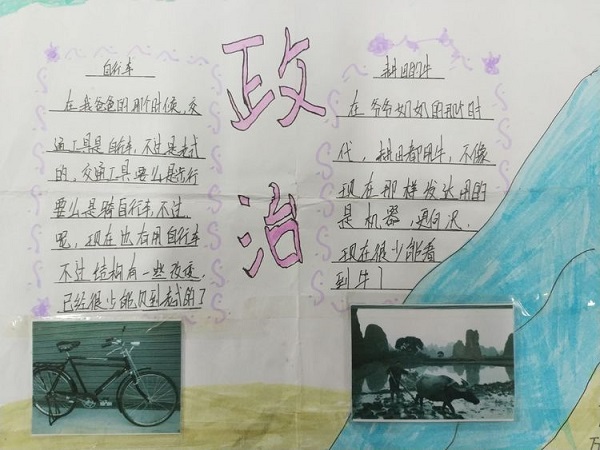 政治
自行车
在我爸爸的那个时候,交
通工具是自行车,不过是老式
的,交通工具要么是步行
要么是骑自行车,不过
呢,现在也有用自行车
不过结构有一些改变,
已经很少能见到老式的了
耕田的牛
在爷爷奶奶的那个时
代,耕田都用牛,不像
现在那样发达用的
是机器,
现在很少能看
到牛了